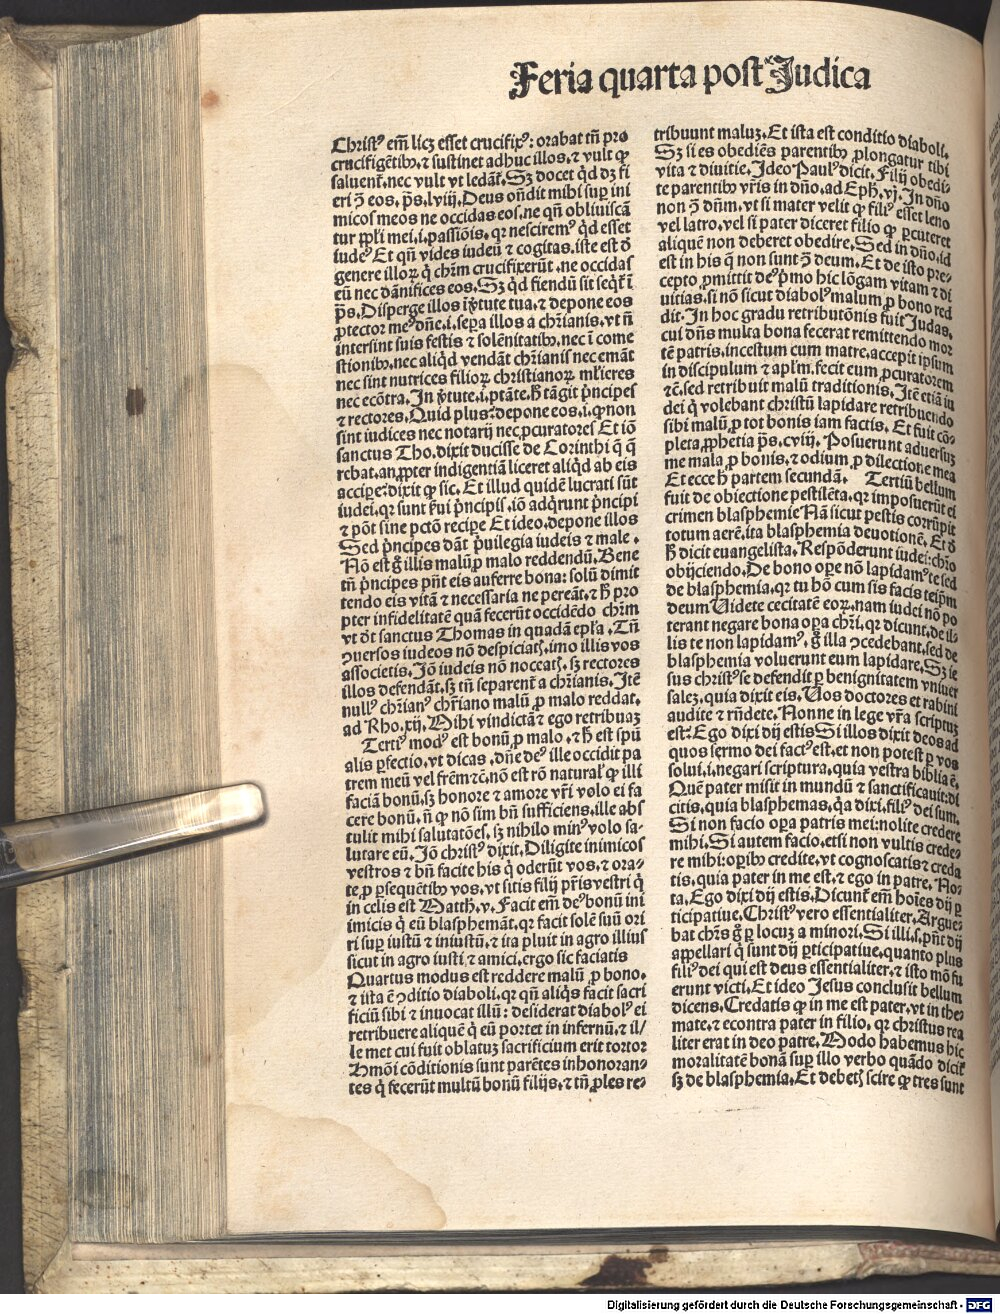 Feria quarta post Judica
Christꝰ em̄ licꝫ esset crucifixꝰ: orabat tn̄ pro
crucifigētibꝫ, ⁊ sustinet adhuc illos, ⁊ vult ꝙ
saluent᷑, nec vult vt ledāt᷑. Sꝫ docet qd̓ dꝫ fi
eri ꝯ eos. ps̄. lviij. Deus on̄dit mihi sup̱ ini
micos meos ne occidas eos, ne qn̄ obliuiscā
tur pp̱li mei, i. passiōis, qꝛ nesciremꝰ qd̓ esset
iudeꝰ Et qn̄ vides iudeū ⁊ cogitas, iste est ď
genere illoꝝ q̇ chr̄m crucifixerūt, ne occidas
eū nec dānifices eos. Sꝫ qd̓ fiendū sit seqt᷑ ī
ps̄. Disperge illos ī v̓tute tua, ⁊ depone eos
ꝓtector meꝰ dn̄e. i. sepa illos a chr̄ianis, vt n̄
intersint suis festis ⁊ solēnitatibꝫ, nec ī come
stionibꝫ, nec aliqd̓ vendāt chr̄ianis nec emāt
nec sint nutrices filioꝝ christianoꝝ ml̓ieres
nec ecōtra. In v̓tute. i. ptāte. h̄ tāgit pͥncipes
⁊ rectores. Quid plus: depone eos. i. ꝙ non
sint iudices nec notarij nec ꝓcuratores Et iō
sanctus Tho. dixit ducisse de Corinthi q̄ q̄
rebat, an ꝓpter indigentiā liceret aliqd̓ ab eis
accipe: dixit ꝙ sic. Et illud quidē lucrati sūt
iudei, qꝛ sunt s̓ui pͥncipis, iō adqͥrunt pͥncipi
⁊ pōt sine pctō recipe Et ideo, depone illos
Sed pͥncipes dāt pͥuilegia iudeis ⁊ male.
Nō est g̊ illis malū ꝓ malo reddendū. Bene
tn̄ pͥncipes pn̄t eis auferre bona: solū dimit
tendo eis vitā ⁊ necessaria ne pereāt, ⁊ h̄ pro
pter infidelitatē quā fecerūt occidēdo chr̄m
vt dt̄ sanctus Thomas in quadā epl̓a. Tn̄
ꝯuersos iudeos nō despiciatꝭ, imo illis vos
associetis. Iō iudeis nō noceatꝭ, sꝫ rectores
illos defendāt, sꝫ tn̄ separent᷑ a chr̄ianis. Itē
nullꝰ chr̄ianꝰ chr̄iano malū ꝓ malo reddat.
ad Rho. xij. Mihi vindictā ⁊ ego retribuaꝫ
Tertiꝰ modꝰ est bonū ꝓ malo. ⁊ h̄ est spū
alis ꝑfectio, vt dicas, dn̄e deꝰ ille occidit pa
trem meū vel frēm ⁊c̄. nō est rō naturaľ ꝙ illi
faciā bonū, sꝫ honore ⁊ amore vr̄i volo ei fa
cere bonū, n̄ ꝙ nō sim bn̄ sufficiens, ille abs
tulit mihi salutatōes, sꝫ nihilo minꝰ volo sa-
lutare eū. Iō christꝰ dixit. Diligite inimicos
vestros ⁊ bn̄ facite his q̇ oderūt vos, ⁊ ora-
te ꝓ ꝑsequētibꝫ vos, vt sitis filij pr̄is vestri q̇
in celis est Matth. v. Facit em̄ deꝰ bonū ini
imicis q̇ eū blasphemāt, qꝛ facit solē suū ori
ri sup̱ iustū ⁊ iniustū, ⁊ ita pluit in agro illius
sicut in agro iusti ⁊ amici, ergo sic faciatis
Quartus modus est reddere malū ꝓ bono,
⁊ ista ē ꝯditio diaboli, qꝛ qn̄ aliqs̓ facit sacri
ficiū sibi ⁊ inuocat illū: desiderat diabolꝰ ei
retribuere aliquē q̇ eū portet in infernū, ⁊ il/
le met cui fuit oblatuꝫ sacrificium erit tortor
Hmōi cōditionis sunt parētes inhonoran-
tes q̇ fecerūt multū bonū filijs, ⁊ tn̄ ꝓles re-
tribuunt maluꝫ. Et ista est conditio diaboli.
Sꝫ si es obediēs parentibꝫ ꝓlongatur tibi
vita ⁊ diuitie. Ideo Paulꝰ dicit. Filij obedi-
te parentibꝫ vr̄is in dn̄o. ad Eph̄. vj. In dn̄o
non ꝯ dn̄m, vt si mater velit ꝙ filiꝰ esset leno
vel latro, vel si pater diceret filio ꝙ ꝑcuteret
aliquē non deberet obedire. Sed in dn̄o, id
est in his q̄ non sunt ꝯ deum. Et de isto pre-
cepto ꝓmittit deꝰ pͥmo hic lōgam vitam ⁊ di
uitias, si nō sicut diabolꝰ malum ꝓ bono red
dit. In hoc gradu retributōnis fuit Judas,
cui dn̄s multa bona fecerat remittendo mor
tē patris, incestum cum matre, accepit ipsum
in discipulum ⁊ aplm̄, fecit eum ꝓcuratorem
⁊c̄. sed retribuit malū traditionis. Itē etiā iu
dei q̇ volebant christū lapidare retribuendo
sibi malū ꝓ tot bonis iam factis. Et fuit cō-
pleta ꝓphetia ps̄. cviij. Posuerunt aduersuꝫ
me mala ꝓ bonis, ⁊ odium ꝓ dilectione mea
Et ecce h̄ partem secundā. Tertiū bellum
fuit de obiectione pestilēta, qꝛ imposuerūt ei
crimen blasphemie Nā sicut pestis corrūpit
totum aerē, ita blasphemia deuotionē. Et ď
h̄ dicit euangelista. Respōderunt iudei chr̄o
obijciendo. De bono ope nō lapidamꝰ te sed
de blasphemia, qꝛ tu hō cum sis facis teipm̄
deum Uidete cecitatē eoꝝ, nam iudei nō po
terant negare bona opa chr̄i, qꝛ dicunt, de il-
lis te non lapidamꝰ, g̊ illa ꝯcedebant, sed de
blasphemia voluerunt eum lapidare. Sꝫ ie
sus christꝰ se defendit ꝑ benignitatem vniuer
saleꝫ, quia dixit eis. Uos doctores et rabini
audite ⁊ rn̄dete. Nonne in lege vr̄a scriptuꝫ
est: Ego dixi dij estis Si illos dixit deos ad
quos sermo dei factꝰ est, et non potest ꝑ vos
solui, i. negari scriptura, quia vestra biblia ē,
Quē pater misit in mundū ⁊ sanctificauit: di
citis, quia blasphemas, qꝛ dixi, filiꝰ dei sum,
Si non facio opa patris mei: nolite credere
mihi. Si autem facio, etsi non vultis crede-
re mihi: opibꝫ credite, vt cognoscatis ⁊ creda
tis, quia pater in me est, ⁊ ego in patre. No-
ta. Ego dixi dij estis. Dicunt᷑ em̄ hoīes dij ꝑ
ticipatiue. Christꝰ vero essentialiter. Argue-
bat chr̄s g̊ ꝑ locuꝫ a minori. Si illi. s. pn̄t dij
appellari q̇ sunt dij ꝑticipatiue, quanto plus
filiꝰ dei qui est deus essentialiter, ⁊ isto mō fu
erunt victi. Et ideo Jesus conclusit bellum
dicens. Credatis ꝙ in me est pater, vt in the-
mate, ⁊ econtra pater in filio, qꝛ christus rea
liter erat in deo patre. Modo habemus hic
moralitatē bonā sup̱ illo verbo quādo dicit᷑
sꝫ de blasphemia. Et debetꝭ scire ꝙ tres sunt
Digitalisierung gefördert durch die Deutsche Forschungsgemeinschaft - DFG